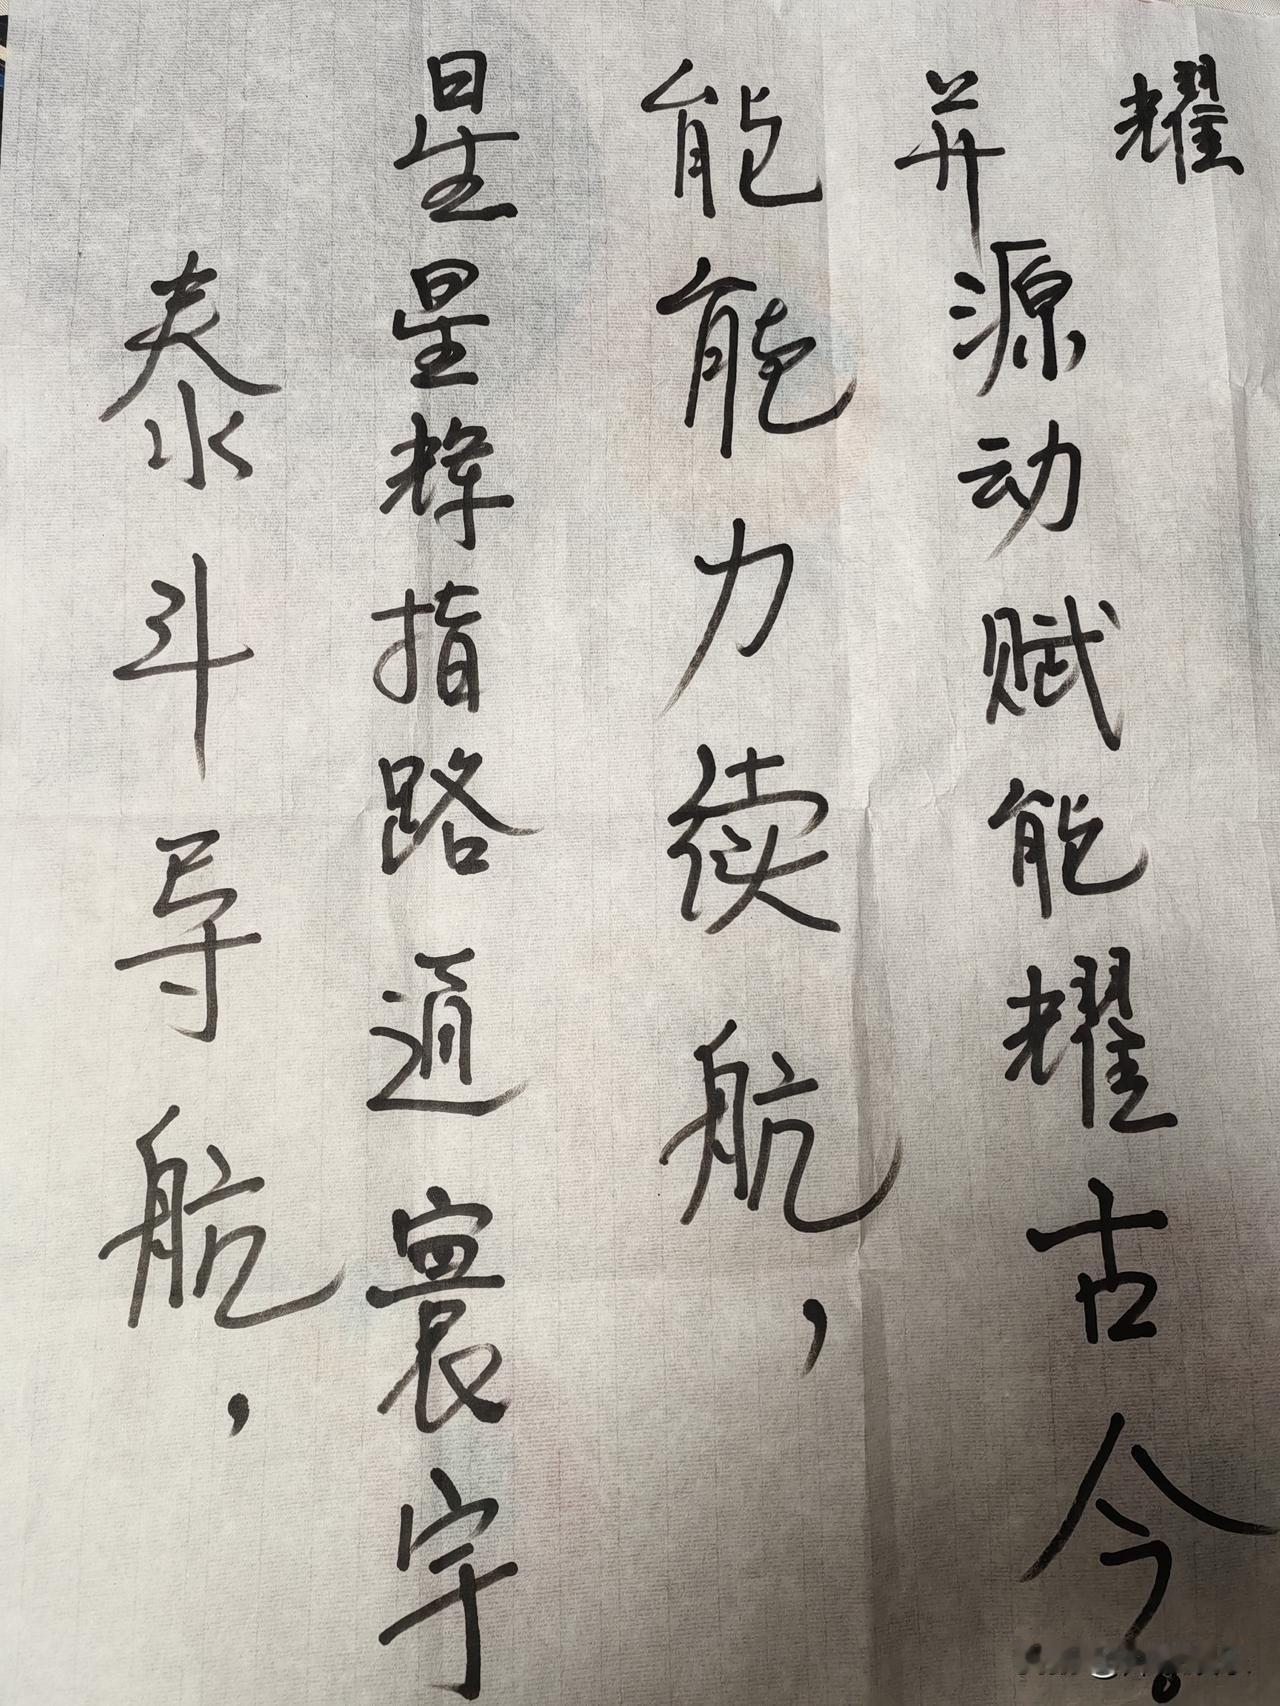 星能并耀
泰斗导航，
星辉指路通寰宇
能力续航，
源动赋能耀古今。